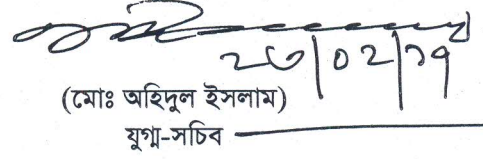 ২৩|০২|১৭
(মোঃ অহিদুল ইসলাম)
যুগ্ম-সচিব